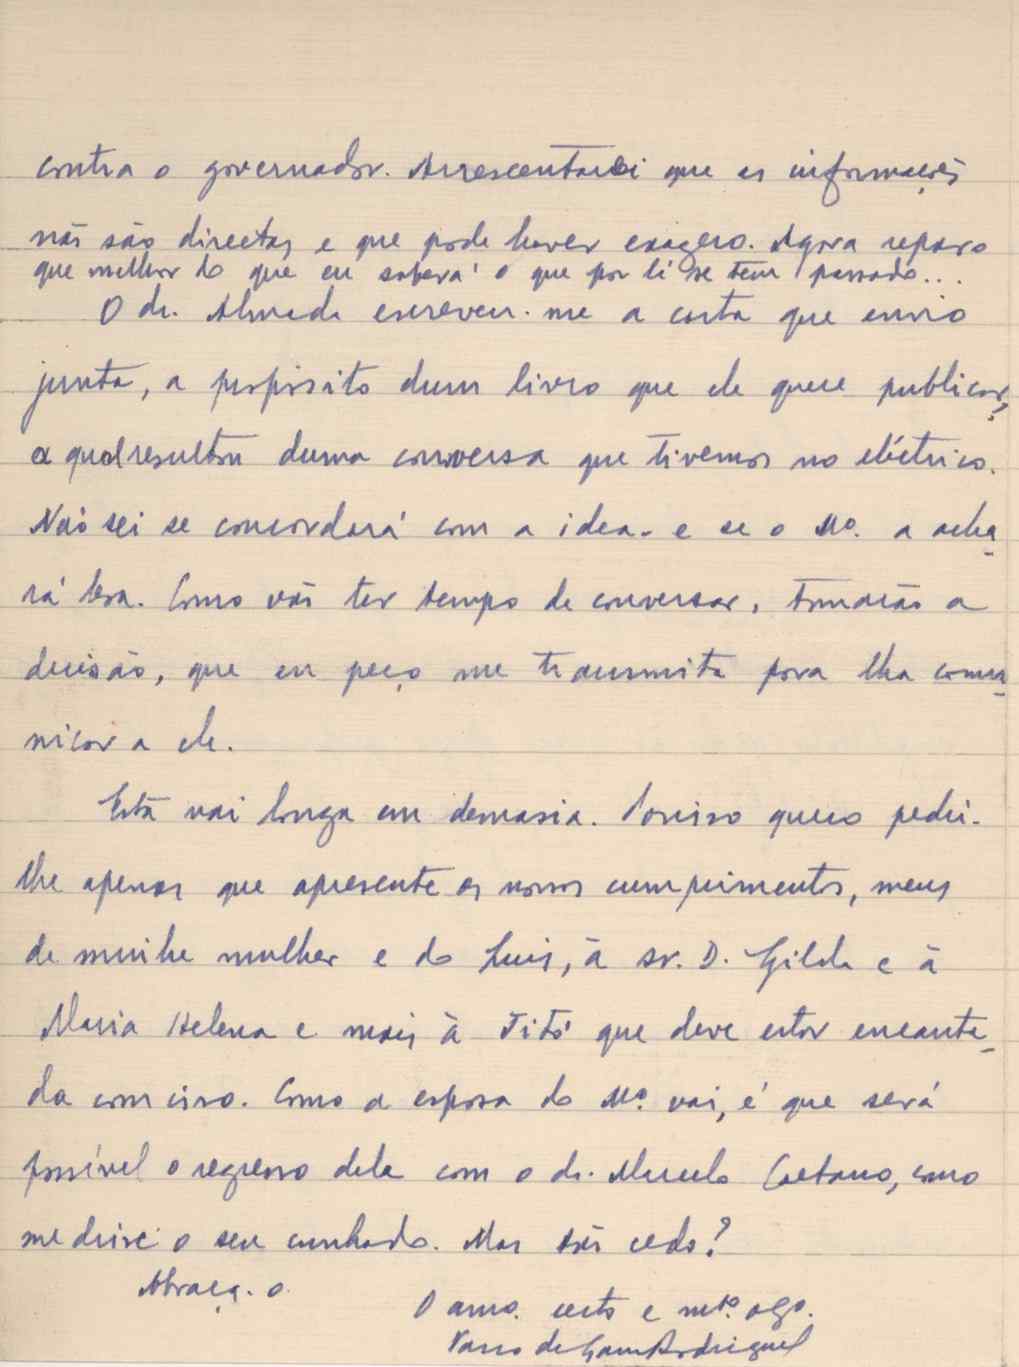 contra o governador. Acrescentarei que as informações
não são directas e que pode haver exagero. Agora reparo
que melhor do que eu saberá o que por lí se tem passado...
O dr. Almada escreveu-me a carta que envio
junta, a propósito dum livro que ele quere publicar,
a qual resultou duma conversa que tivemos no eléctrico.
Não sei se concordará com a idea - e se o Mº. a acha-
rá boa. Como vão ter tempo de conversar, tomarão a
decisão, que eu peço me transmita para lha comu-
nicar a ele.
Esta vai longa em demasia. Por isso quero pedir-
lhe apenas que apresente os nossos cumprimentos, meus
de minha mulher e do Luis, à sr. D. Gilda e à
Maria Helena e mais à Titó que deve estar encanta-
da com isso. Como a esposa do Mº. vai, é que será
possível o regresso dela com o dr. Marcelo Caetano, como
me disse o seu cunhado. Mas tão cedo?
Abraça-o
O amo. certo e mtº. obgº.
Vasco de Gama Rodrigues